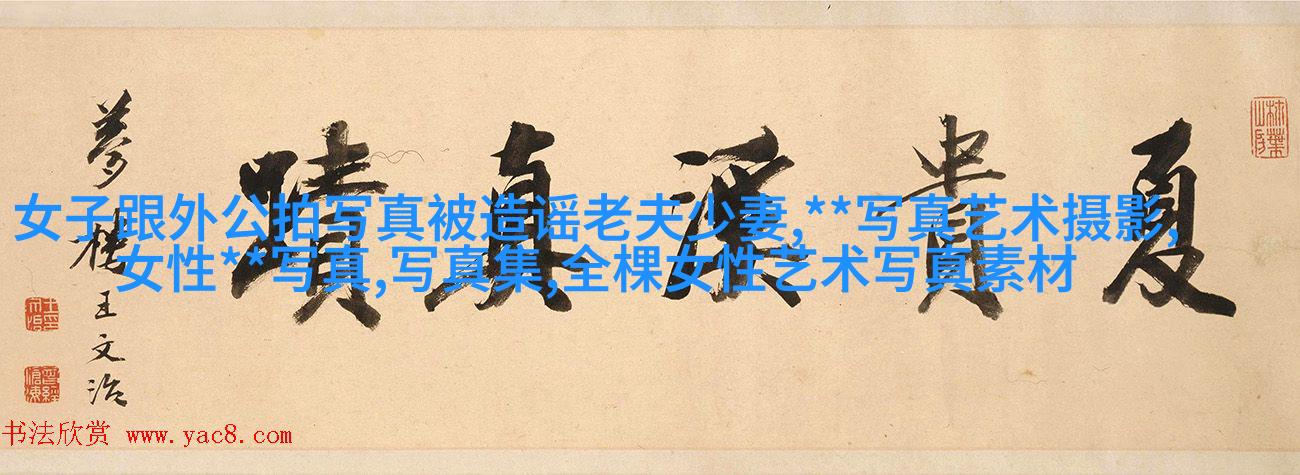 女子跟外公拍写真被造谣老夫少妻,**写真艺术摄影,
女性**写真,写真集,全棵女性艺术写真素材
夏貴溪真蹟
夢樓王文治
书法欣赏 www.yac8.com